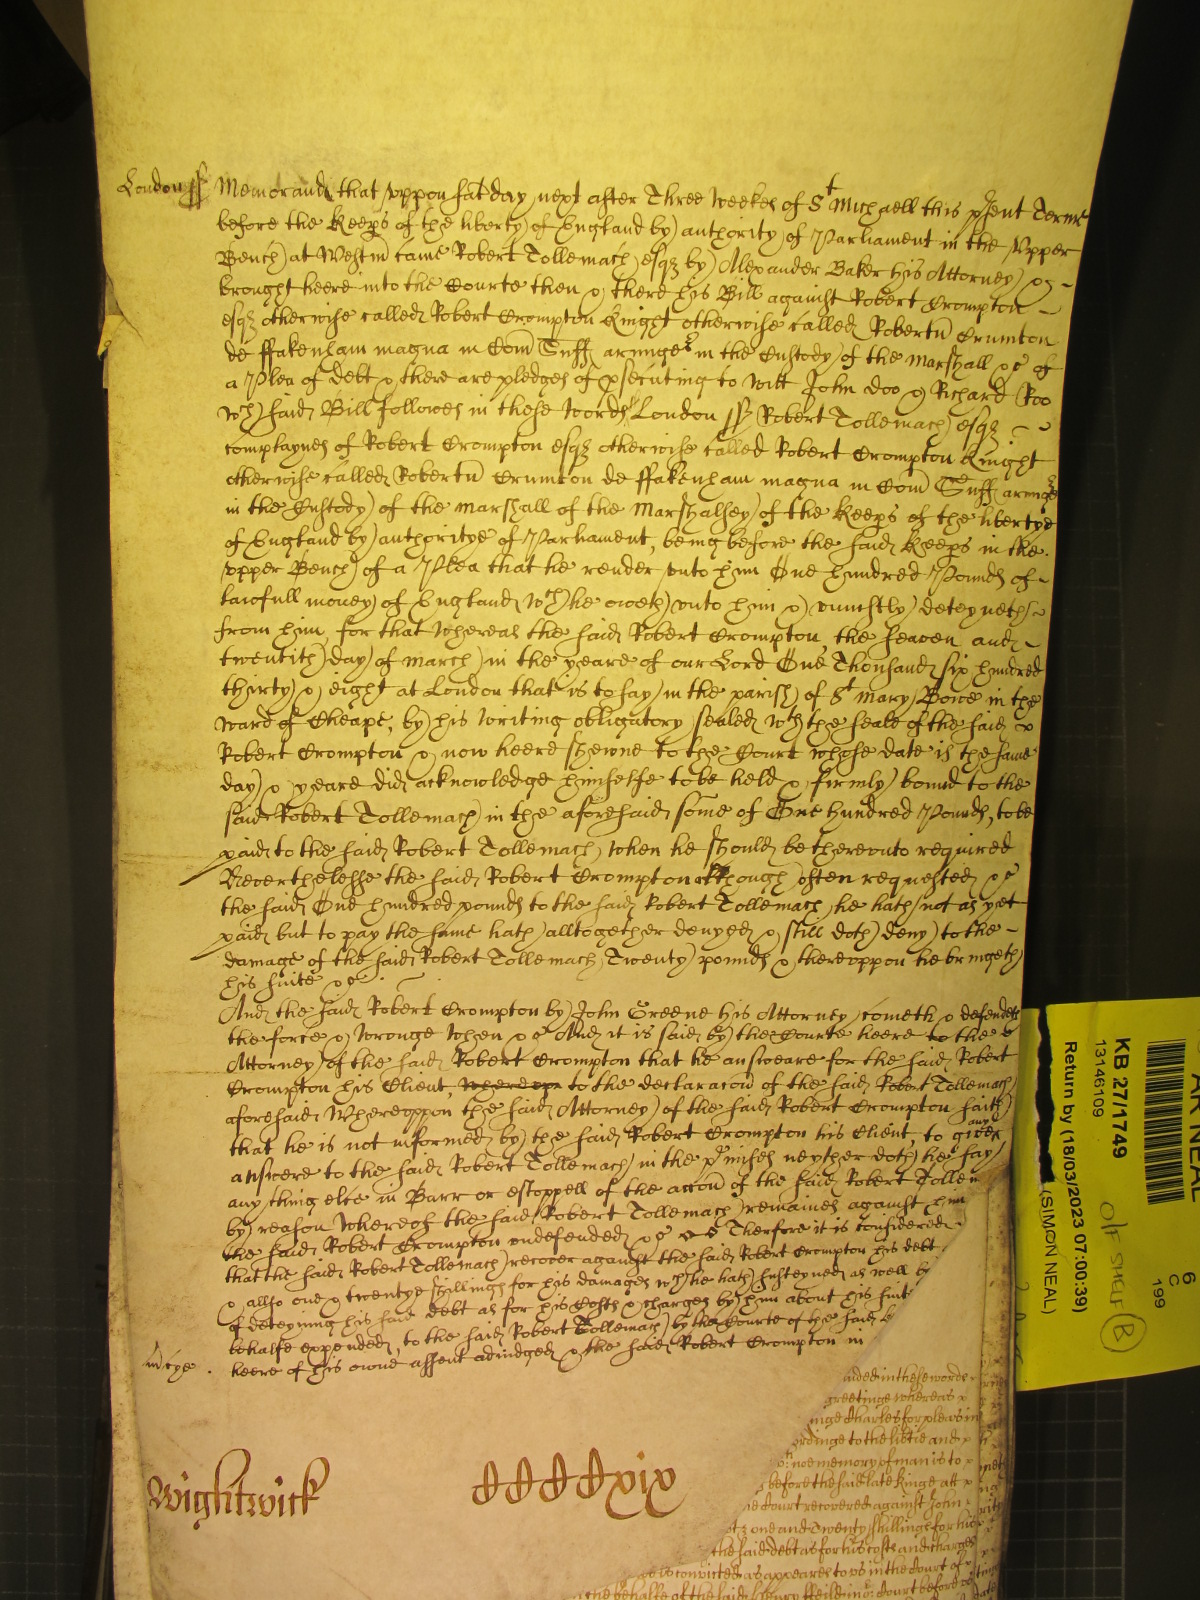 London ss Memorand that uppon Satday next after Three weekes of St Michaell this psent Terme
before the Keeps of the liberty of England by authority of Parliament in the Upper
Bench at Westm came Robert Tollemach esqz by Alexander Baker his Attorney &
brought heere into the Courte then & there his Bill against Robert Crompton
esqz otherwise called Robert Crompton Knight otherwise called Robertu Crumton
de ffakenham magna in Com Suff armiger in the Custody of the Marshall &c of
a Plea of debt & there are pledges of psecuting to witt John Doo & Richard Roo
wch said Bill followes in these words London ss Robert Tollemach esqz
complaynes of Robert Crompton esqz otherwise called Robert Crompton Knight
otherwise called Robertu Crumton de ffakenham magna in Com Suff armiger
in the Custody of the Marshall of the Marshalsey of the Keeps of the libertye
of England by authoritye of Parliament, being before the said Keeps in the
upper Bench of a Plea that he render unto him One hundred Pounds of
lawfull money of England wch he oweth unto him & uniustly deteyneth
from him, for that whereas the said Robert Crompton the seaven and
twentith day of March in the yeare of our Lord One Thousand six hundred
thirty & eight at London that is to say in the parish of St Mary Bowe in the
Ward of Cheape, by his writing obligatory sealed wth the seale of the said
Robert Crompton & now heere shewne to the Court whose date is the same
day & yeare did acknowledge himselfe to be held & firmly bound to the
said Robert Tollemach in the aforesaid some of One hundred Pounds, to be
paid to the said Robert Tollemach when he should be thereunto required
Neverthelesse the said Robert Crompton although often requested &c
the said One hundred pounds to the said Robert Tollemach he hath not as yet
paid but to pay the same hath alltogether denyed & still doth deny to the
damage of the said Robert Tollemach Twenty pounds & thereuppon he bringeth
his suite &c
And the said Robert Crompton by John Greene his Attorney cometh & defendeth
the force & wronge when &c And it is said by the Courte heere to the
Attorney of the said Robert Crompton that he answeare for the said Robert
Crompton his Client, whereupp to the declaracon of the said Robert Tollemach
aforesaid Whereuppon the said Attorney of the said Robert Crompton saith
that he is not informed by the said Robert Crompton his Client, to give any
answere to the said Robert Tollemach in the pmises neyther doth he say
any thing else in Barr or estoppell of the accon of the said Robert Tollem
by reason whereof the said Robert Tollemach remaines against him
the said Robert Crompton undefended &c Therfore it is considered
that the said Robert Tollemach recover against the said Robert Crompton his debt
& allso one & twentye shillings for his damages wch he hath susteyned as well by
of deteyning his said debt as for his Costs & charges by him about his suite
behalfe expended, to the said Robert Tollemach by the Courte of the said
heere of his owne assent adiudged & the said Robert Crompton in
m̄cye
aided in these words
greetinge whereas
inge Charles for pleas in
ordinge to the
noe memory of man is to
before the said late kinge att
Court recovered against John
one and Twenty shillings for his
the said debt as for his costs and charges
convicted as appeares to us in the Court of
the behalfe of the said
Wightwick
CCCCxix
KB 27/1749
13146109
Return by (18/03/2023 07:00:39)
(SIMON NEAL)
AR NEAL
O/F SHELF B
6
C
199